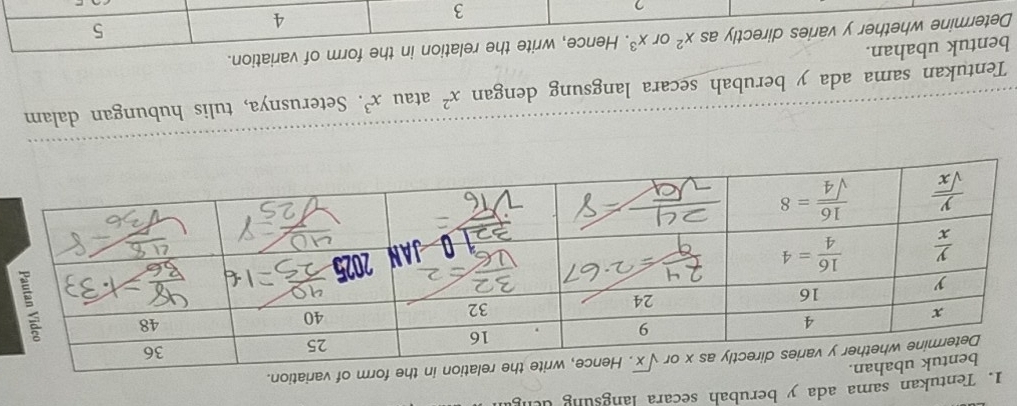 1. Tentukan sama ada y berubah secara langsung dengan
bentuk ubahan.
Determine whether y varies directly as x or √x. Hence, write the relation in the form of variation.
x 4 9 16 25 36
y 16 24 32 40 48
y/x 16/4 = 4 24/9 = 2.67 32/16 = 2 40/25 = 1.6 48/36 = 1.33
y/√x 16/√4 = 8 24/√9 = 8 32/√16 = 40/√25 = 8 48/√36 = 8
10 JAN 2025
Pautan Video
Tentukan sama ada y berubah secara langsung dengan x² atau x³. Seterusnya, tulis hubungan dalam
bentuk ubahan.
Determine whether y varies directly as x² or x³. Hence, write the relation in the form of variation.
2 3 4 5